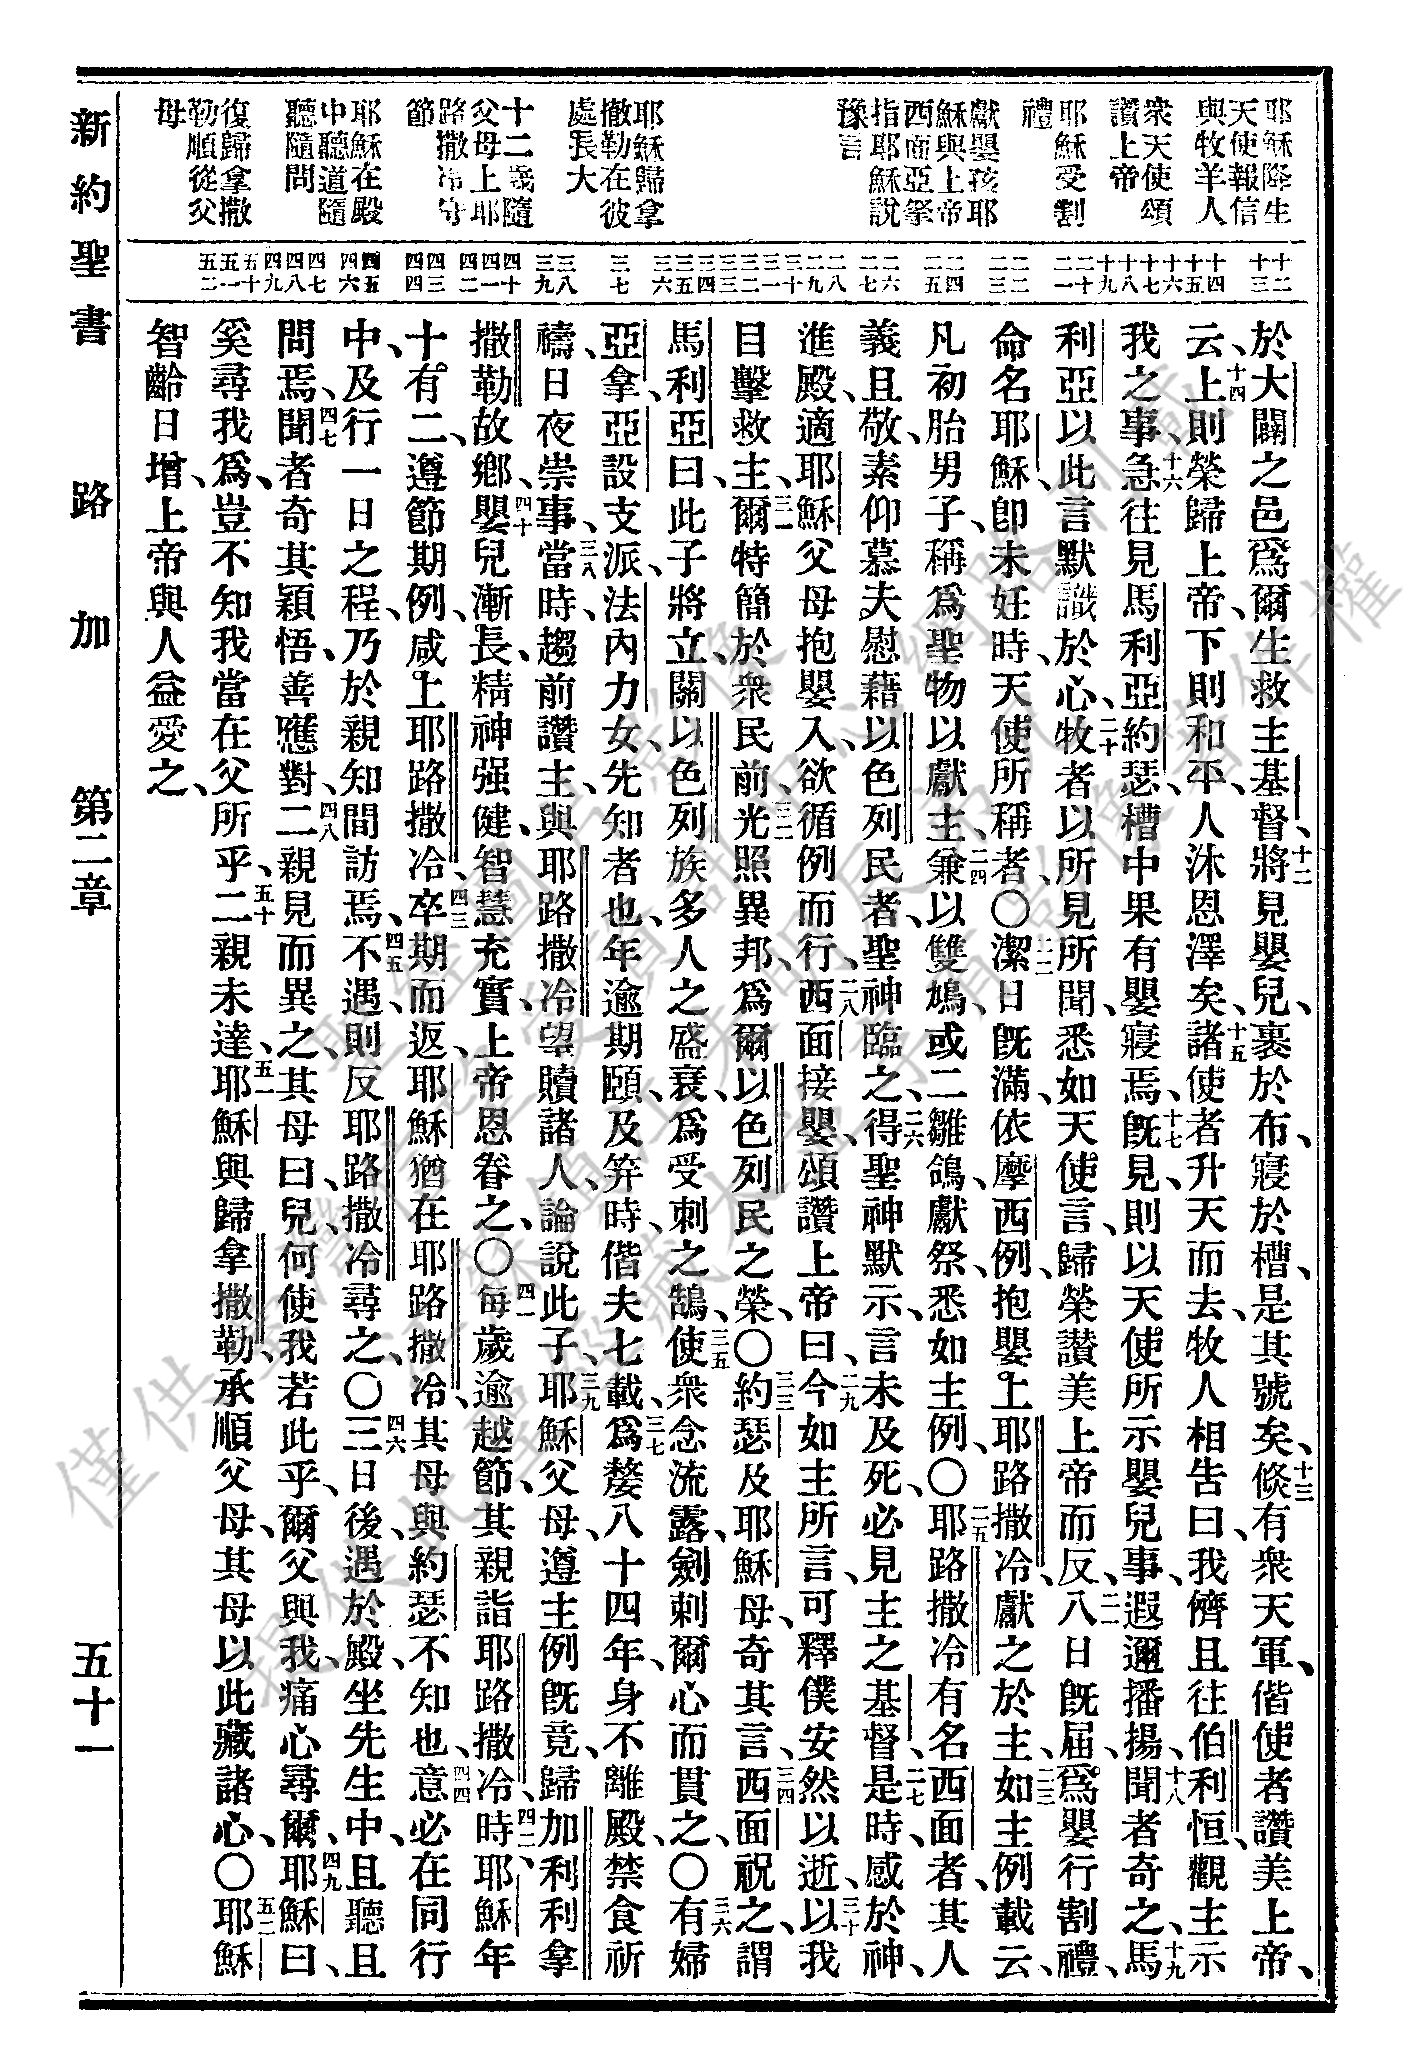 耶穌降生
天使報信
與牧羊人
衆天使頌
讚上帝
耶穌受割
禮
獻嬰孩耶
穌與上帝
西面亞祭
指耶穌說
豫言
耶穌歸拿
撒勒在彼
處長大
十二歲隨
父母上耶
路撒冷守
節
耶穌在殿
中聽道隨
聽隨問
復歸拿撒
勒順從父
母
十二 十三 十四 十五 十六 十七 十八 十九 二十 二一 二二 二三 二四 二五 二六 二七 二八 二九 三十 三一 三二 三三 三四 三五 三六 三七 三八 三九 四十 四一 四二 四三 四四 四五 四六 四七 四八 四九 五十 五一 五二
於大闢之邑爲爾生救主基督、十二將見嬰兒、裹於布、寢於槽、是其號矣、十三倐有衆天軍、偕使者讚美上帝、
云、十四上則榮歸上帝、下則和平、人沐恩澤矣、十五諸使者升天而去、牧人相告曰、我儕且往伯利恒、觀主示
我之事、十六急往見馬利亞約瑟、槽中果有嬰寢焉、十七旣見、則以天使所示嬰兒事、遐邇播揚、十八聞者奇之、十九馬
利亞以此言默識於心、二十牧者以所見所聞、悉如天使言、歸榮讃美上帝而反、二一八日旣届、爲嬰行割禮、
命名耶穌、卽未妊時、天使所稱者、〇二二潔日旣滿、依摩西例、抱嬰上耶路撒冷、獻之於主、二三如主例載云、
凡初胎男子、稱爲聖物以獻主、二四兼以雙鳩、或二雛鴿獻祭、悉如主例、〇二五耶路撒冷有名西面者、其人
義且敬、素仰慕夫慰藉以色列民者、聖神臨之、二六得聖神默示、言未及死、必見主之基督、二七是時、感於神、
進殿、適耶穌父母抱嬰入、欲循例而行、二八西面接嬰、頌讚上帝曰、二九今如主所言、可釋僕安然以逝、三十以我
目擊救主、三一爾特簡於衆民前、三二光照異邦、爲爾以色列民之榮、〇三三約瑟及耶穌母、奇其言、三四西面祝之、謂
馬利亞曰、此子將立、關以色列族多人之盛衰、爲受刺之鵠、三五使衆念流露、劍刺爾心而貫之、〇三六有婦
亞拿、亞設支派、法內力女、先知者也、年逾期頤、及笄時、偕夫七載、三七爲嫠八十四年、身不離殿、禁食祈
禱、日夜崇事、三八當時、趨前讚主、與耶路撒冷望贖諸人、論說此子、三九耶穌父母、遵主例旣竟、歸加利利拿
撒勒故鄉、四十嬰兒漸長、精神强健、智慧充實、上帝恩眷之、〇四一每歲逾越節、其親詣耶路撒冷、四二時耶穌年
十有二、遵節期例、咸上耶路撒冷、四三卒期而返、耶穌猶在耶路撒冷、其母與約瑟不知也、四四意必在同行
中、及行一日之程、乃於親知間訪焉、四五不遇、則反耶路撒冷尋之、〇四六三日後、遇於殿、坐先生中、且聽且
問焉、四七聞者奇其穎悟、善應對、四八二親見而異之、其母曰、兒何使我若此乎、爾父與我、痛心尋爾、四九耶穌曰、
奚尋我爲、豈不知我當在父所乎、五十二親未達、五一耶穌與歸拿撒勒、承順父母、其母以此藏諸心、〇五二耶穌
智齡日增、上帝與人益愛之、
新約聖書 路加 第二章 五十一